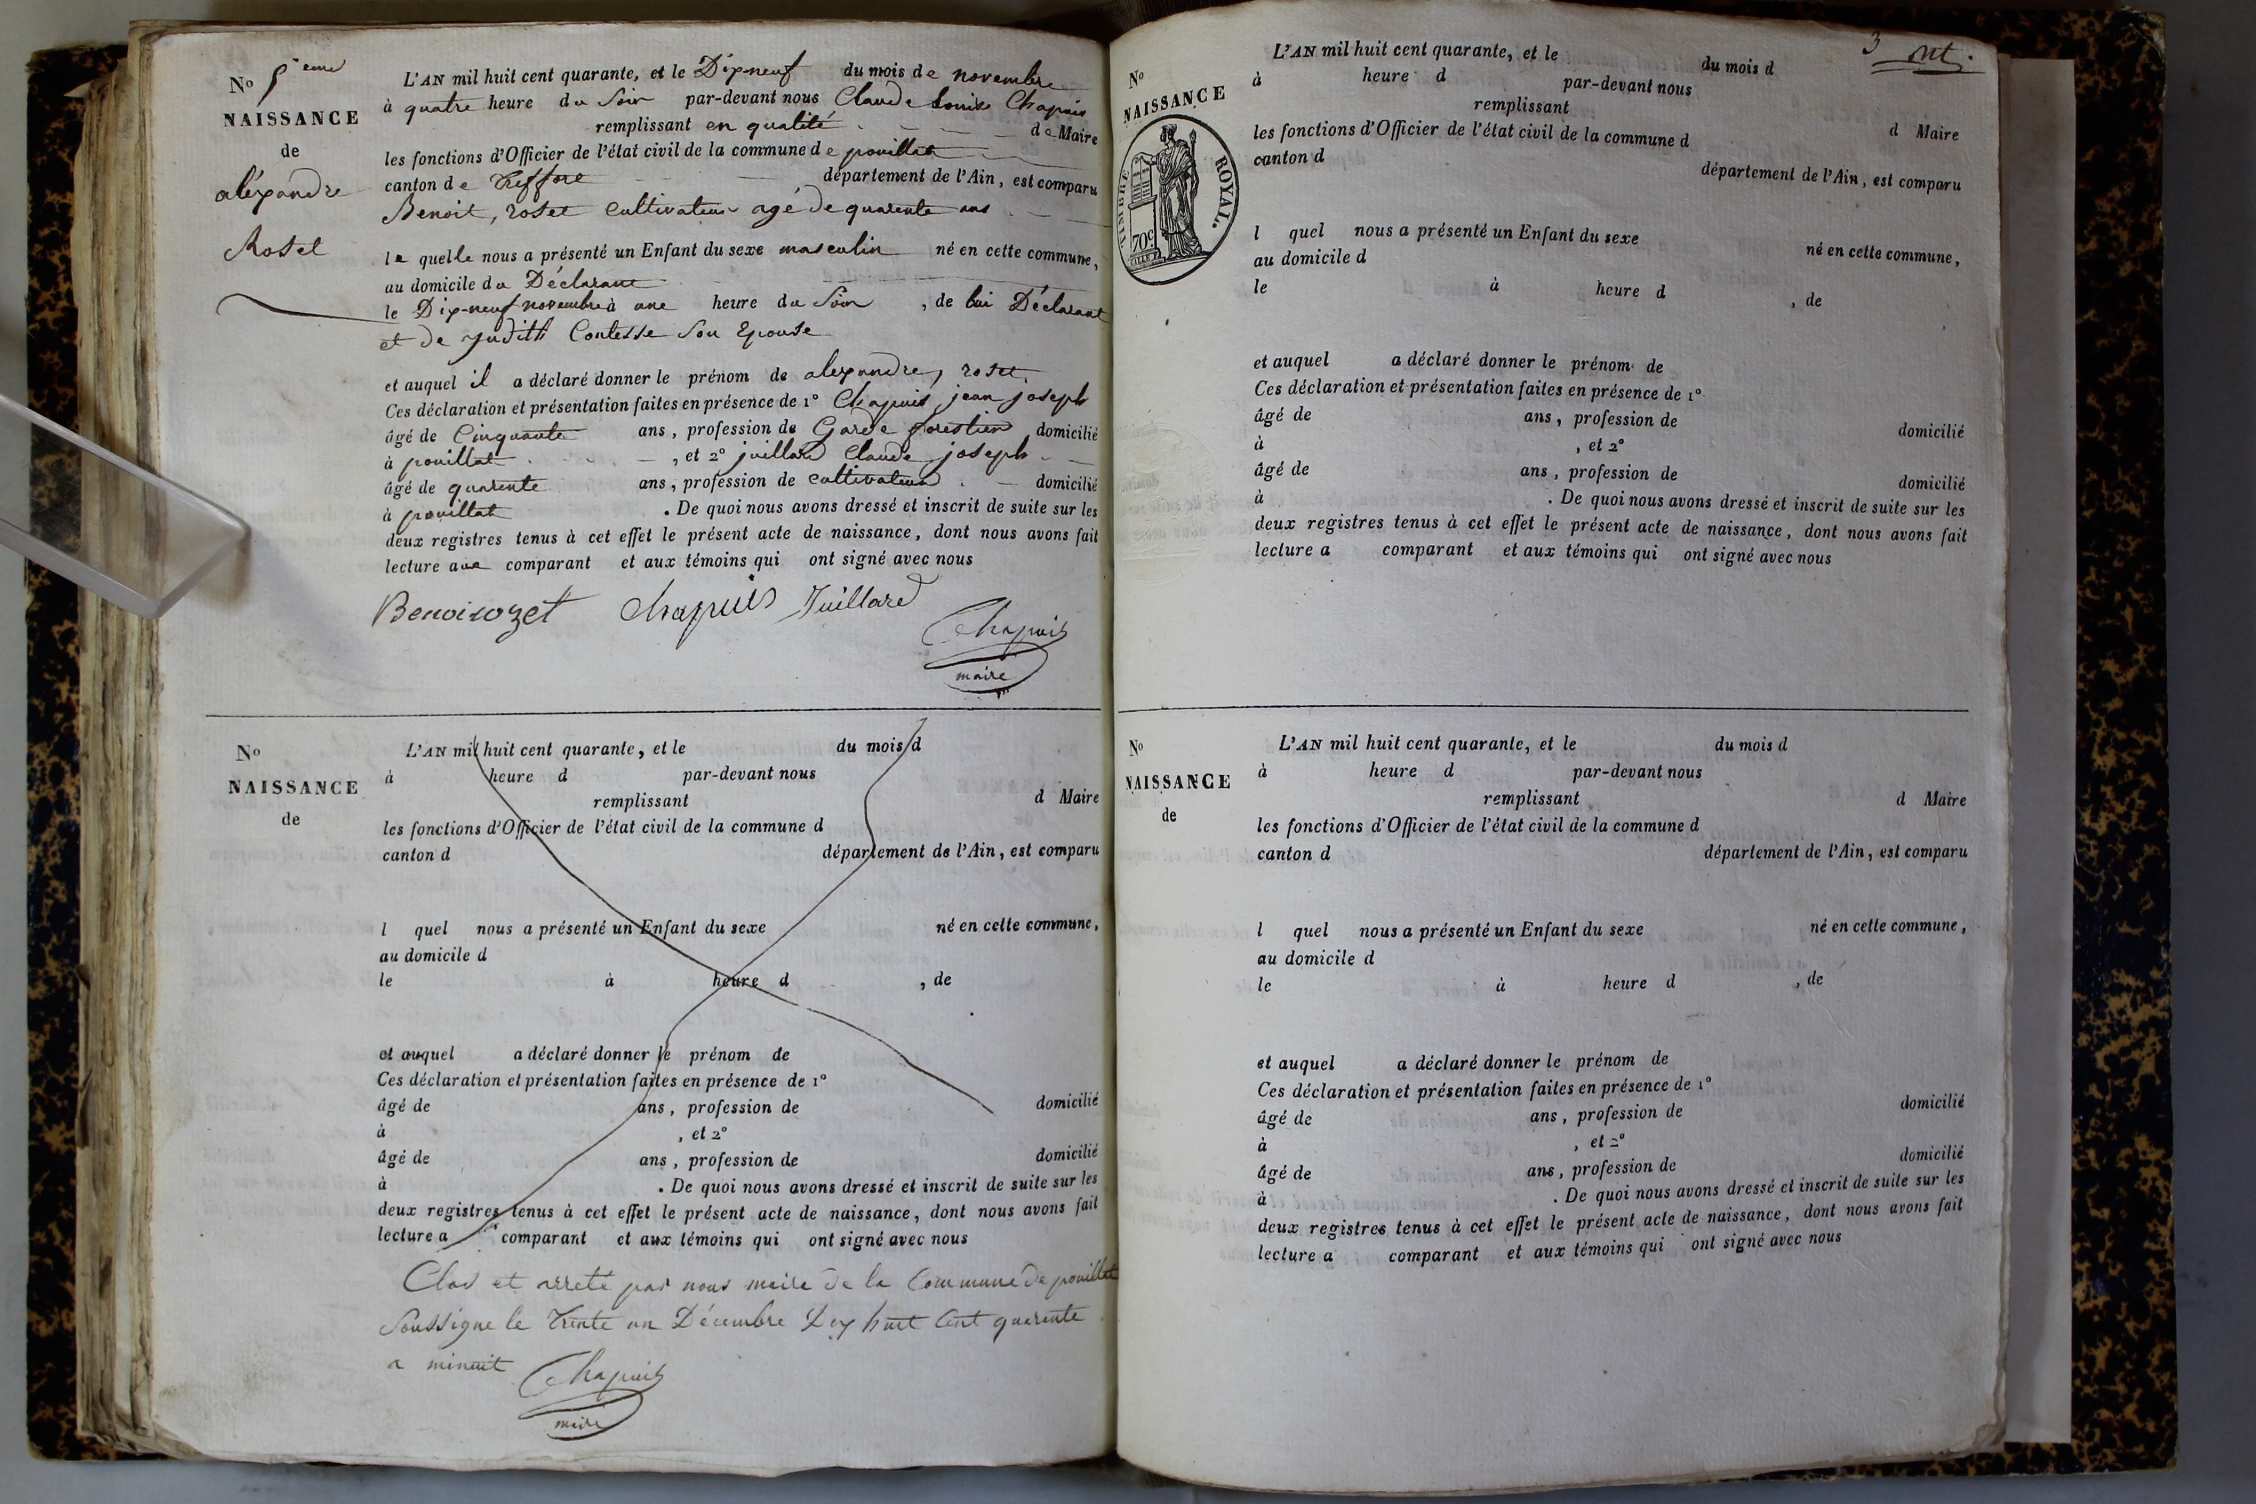 No 5eme
NAISSANCE
de
aléxandre
Rosel
L'AN mil huit cent quarante, et le Dix-neuf du mois de novembre
à quatre heure du Soir par-devant nous Claude Louis Chapuis
remplissant en qualité de Maire
les fonctions d'Officier de l'état civil de la commune de pouillat
canton de Treffort département de l'Ain, est comparu
Benoit, roset cultivateur agé de quarente ans
le quelle nous a présenté un Enfant du sexe masculin né en cette commune,
au domicile du Déclarant
le Dix-neuf novembre à une heure du Soir, de lui Déclarant
et de judith Contesse Son Epouse
et auquel il a déclaré donner le prénom de alexandre, roset.
Ces déclaration et présentation faites en présence de 1° Chapuis jean joseph
âgé de Cinquante ans, profession de Garde forestier domicilié
à pouillat, et 2° juillard Claude joseph
âgé de quarente ans, profession de cultivateur domicilié
à pouillat. De quoi nous avons dressé et inscrit de suite sur les
deux registres tenus à cet effet le présent acte de naissance, dont nous avons fait
lecture aux comparant et aux témoins qui ont signé avec nous
Benoirozet chapuis Juillard
Chapuis
maire
No
NAISSANCE
de
L'AN mil huit cent quarante, et le du mois d
à heure d par-devant nous
remplissant d Maire
les fonctions d'Officier de l'état civil de la commune d
canton d département de l'Ain, est comparu
l quel nous a présenté un Enfant du sexe né en cette commune,
au domicile d
le à heure d , de
et auquel a déclaré donner le prénom de
Ces déclaration et présentation faites en présence de 1°
âgé de ans, profession de domicilié
à , et 2°
âgé de ans, profession de domicilié
à . De quoi nous avons dressé et inscrit de suite sur les
deux registres tenus à cet effet le présent acte de naissance, dont nous avons fait
lecture a comparant et aux témoins qui ont signé avec nous
Clos et arreté par nous maire de la Commune de pouillat
Soussigne le Trente un Décembre Dix huit Cent quarente
a minuit
Chapuis
maire
3
No
NAISSANCE
TIMBRE ROYAL.
70c
L'AN mil huit cent quarante, et le du mois d
à heure d par-devant nous
remplissant d Maire
les fonctions d'Officier de l'état civil de la commune d
canton d département de l'Ain, est comparu
l quel nous a présenté un Enfant du sexe né en cette commune,
au domicile d
le à heure d , de
et auquel a déclaré donner le prénom de
Ces déclaration et présentation faites en présence de 1°
âgé de ans, profession de domicilié
à , et 2°
âgé de ans, profession de domicilié
à . De quoi nous avons dressé et inscrit de suite sur les
deux registres tenus à cet effet le présent acte de naissance, dont nous avons fait
lecture a comparant et aux témoins qui ont signé avec nous
No
NAISSANCE
de
L'AN mil huit cent quarante, et le du mois d
à heure d par-devant nous
remplissant d Maire
les fonctions d'Officier de l'état civil de la commune d
canton d département de l'Ain, est comparu
l quel nous a présenté un Enfant du sexe né en cette commune,
au domicile d
le à heure d , de
et auquel a déclaré donner le prénom de
Ces déclaration et présentation faites en présence de 1°
âgé de ans, profession de domicilié
à , et 2°
âgé de ans, profession de domicilié
à . De quoi nous avons dressé et inscrit de suite sur les
deux registres tenus à cet effet le présent acte de naissance, dont nous avons fait
lecture a comparant et aux témoins qui ont signé avec nous